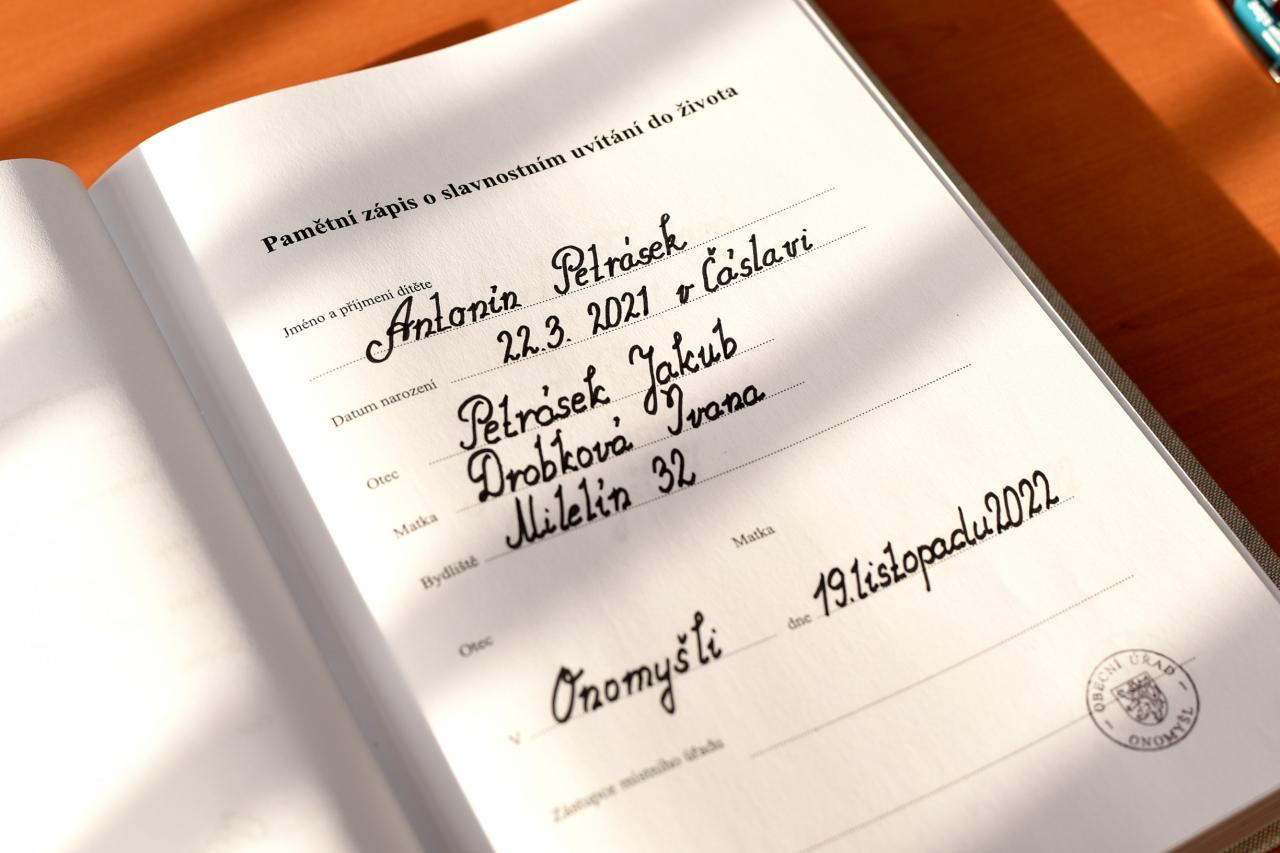 Pamětní zápis o slavnostním uvítání do života
Jméno a příjmení dítěte Antonín Petrásek
Datum narození 22.3. 2021 v Čáslavi
Otec Petrásek Jakub
Matka Drobková Ivana
Bydliště Miletín 32
Otec Matka
V Onomyšli dne 19.listopadu2022
Zástupce místního úřadu
OBECNÍ ÚŘAD
ONOMYŠL